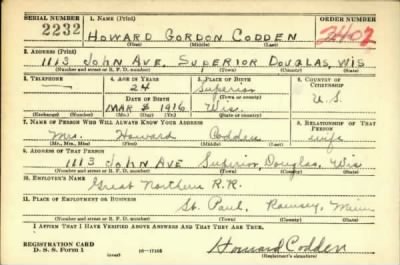 SERIAL NUMBER 1. NAME (Print) ORDER NUMBER
2232 HOWARD GORDON CODDEN 2402
(First) (Middle) (Last)
2. ADDRESS (Print)
1113 JOHN AVE, SUPERIOR DOUGLAS, WIS
(Number and street or R. F. D. number) (Town) (County) (State)
3. TELEPHONE 4. AGE IN YEARS 5. PLACE OF BIRTH 6. COUNTRY OF CITIZENSHIP
— 24 Superior
DATE OF BIRTH (Town or county) U.S.
MAR 1916 Wis.
(Exchange) (Number) (Mo.) (Day) (Yr.) (State or country)
7. NAME OF PERSON WHO WILL ALWAYS KNOW YOUR ADDRESS 8. RELATIONSHIP OF THAT PERSON
Mrs. Howard Codden wife
(Mr., Mrs., Miss) (First) (Middle) (Last)
9. ADDRESS OF THAT PERSON
1113 JOHN AVE Superior, Douglas, Wis
(Number and street or R. F. D. number) (Town) (County) (State)
10. EMPLOYER'S NAME
Great Northern R.R.
11. PLACE OF EMPLOYMENT OR BUSINESS
St. Paul, Ramsey, Minn
(Number and street or R. F. D. number) (Town) (County) (State)
I AFFIRM THAT I HAVE VERIFIED ABOVE ANSWERS AND THAT THEY ARE TRUE.
REGISTRATION CARD
D. S. S. Form 1 Howard Codden
(Registrant's signature)